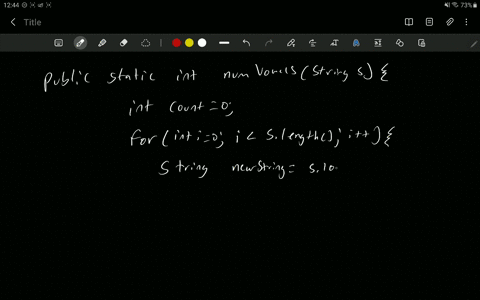 12:44
73%
Title
public static int numVowels(String s) {
int count=0;
for(int i=0; i < s.length(); i++) {
String newString= s.lo